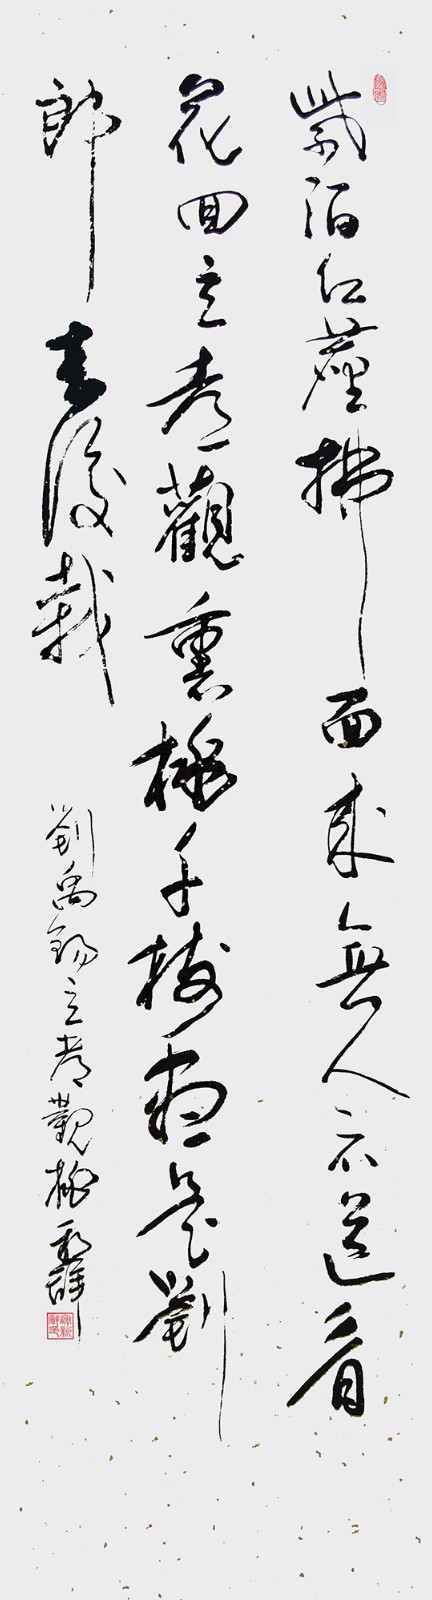 紫陌紅塵拂面來無人不道看
花回玄都觀裏桃千樹盡是劉
郎去後栽
劉禹錫玄都觀桃